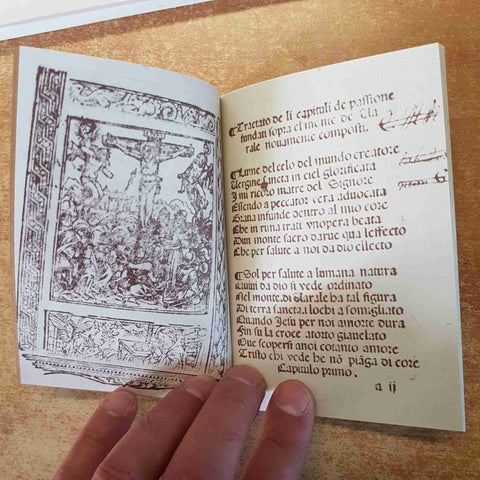 Tractato de li capituli de passione
fundati sopra el monte de Va
rale nouamente composti.
Lume del celo del mundo creatore
Vergine sancta in ciel glorificata
J mi ricolzo matre del Signore
Essendo a peccator vera aduocata
Gratia infunde dentro al mio core
Che in rima trati vn opera beata
Dun monte sacro darue qua leffecto
Che per salute a noi da dio ellecto
Sol per salute a lumana natura
da dio si vede ordinato
Nel monte di Uarale ha tal figura
Di terra sancta a lochi asomigliato
Quando Jesu per noi amorte dura
Fin su la croce atorto giauelato
Que scoperse anoi cotanto amore
Tristo chi vede he nõ piãga di core
Capitulo primo.
a ij